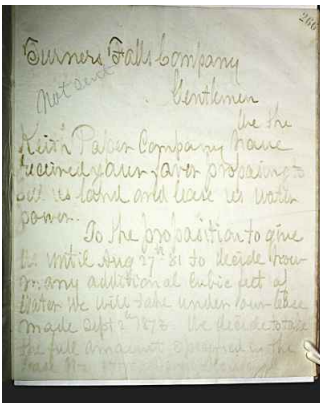 266
Turners Falls Company
Not sent
Gentlemen
We the
Keith Paper Company have
received your favor proposing to
sell us land and lease us water
power.
To the proposition to give
us until Aug 27th 81 to decide how
many additional cubic feet of
water we will take under our lease
made Sept 2nd 1873 We decide to take
the full amount in the